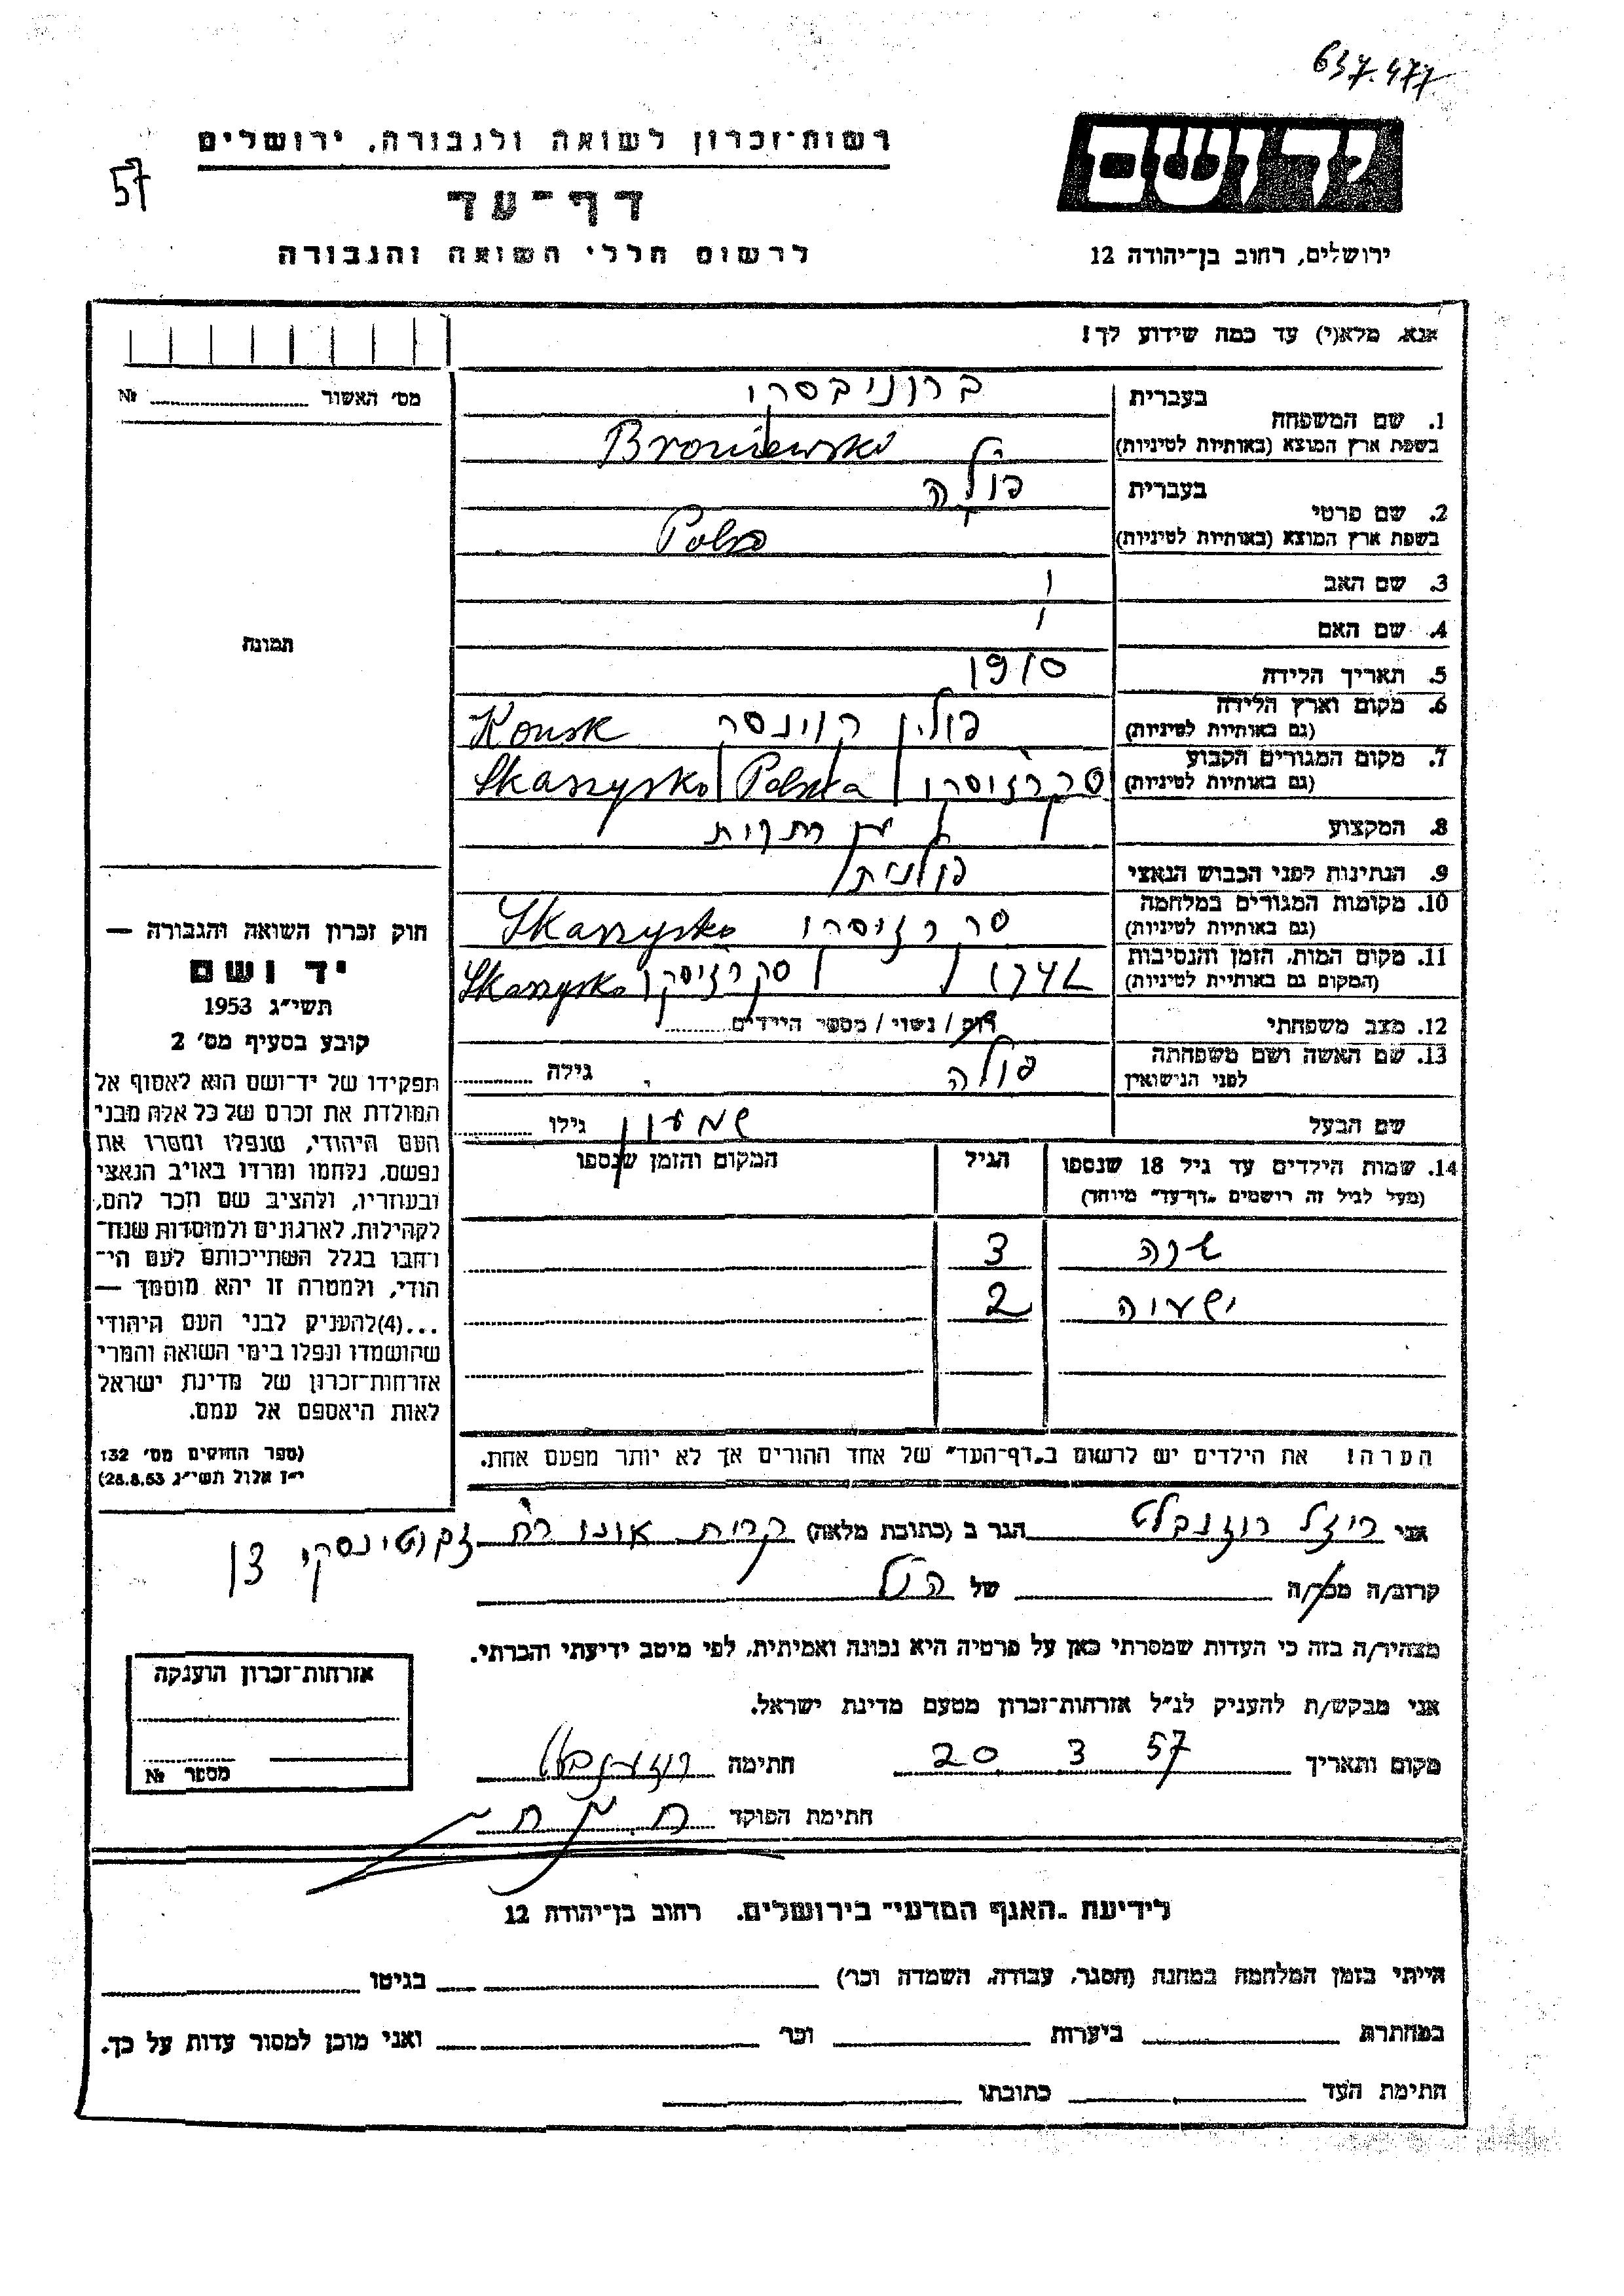 637.477
יד ושם
רשות־זכרון לשואה ולגבורה, ירושלים
57
דף־עד
לרשום חללי השואה והגבורה
ירושלים, רחוב בן־יהודה 12
אנא, מלא(י) עד כמה שידוע לך!
מס׳ האשור № 
1. שם המשפחה בעברית ברוניבסקו
בשפת ארץ המוצא (באותיות לטיניות) Broniewsko
2. שם פרטי בעברית פולה
בשפת ארץ המוצא (באותיות לטיניות) Pola
3. שם האב
4. שם האם
תמונה
5. תאריך הלידה 1910
6. מקום וארץ הלידה (גם באותיות לטיניות) פולין קוינסק Konsk
7. מקום המגורים הקבוע (גם באותיות לטיניות) סקרזיסקו Polska Skarzysko
8. המקצוע
9. הנתינות לפני הכבוש הנאצי פולנית
10. מקומות המגורים במלחמה (גם באותיות לטיניות) סקרזיסקו Skarzysko
11. מקום המות, הזמן והנסיבות (המקום גם באותיות לטיניות) סקרזיסקו Skarzysko
12. מצב משפחתי רוק / נשוי / מספר הילדים
13. שם האשה ושם משפחתה לפני הנישואין פולה גילה
שם הבעל שמעון גילו
14. שמות הילדים עד גיל 18 שנספו הגיל המקום והזמן שנספו
(מעל לגיל זה רושמים „דף־עד״ מיוחד)
שרה 3
ישעיה 2
הערה! את הילדים יש לרשום ב„דף־העד״ של אחד ההורים אך לא יותר מפעם אחת.
חוק זכרון השואה והגבורה —
יד ושם
תשי״ג 1953
קובע בסעיף מס׳ 2
תפקידו של יד־ושם הוא לאסוף אל
המולדת את זכרם של כל אלה מבני
העם היהודי, שנפלו ומסרו את
נפשם, נלחמו ומרדו באויב הנאצי
ובעוזריו, ולהציב שם וזכר להם,
לקהילות, לארגונים ולמוסדות שנח־
רבו בגלל השתייכותם לעם הי־
הודי, ולמטרה זו יהא מוסמך —
...(4)להעניק לבני העם היהודי
שהושמדו ונפלו בימי השואה והמרי
אזרחות־זכרון של מדינת ישראל
לאות היאספם אל עמם.
(ספר החוקים מס׳ 132
י״ז אלול תשי״ג 28.8.53)
אני רוזנבלט הגר ב (כתובת מלאה) קרית אונו רח זבוטינסקי
קרוב/ה מכר/ה של הנ״ל
מצהיר/ה בזה כי העדות שמסרתי כאן על פרטיה היא נכונה ואמיתית, לפי מיטב ידיעתי והכרתי.
אני מבקש/ת להעניק לנ״ל אזרחות־זכרון מטעם מדינת ישראל.
מקום ותאריך 20 3 57 חתימה רוזנבלט
חתימת הפוקד
אזרחות־זכרון הוענקה
מספר №
לידיעת „האגף המדעי״ בירושלים, רחוב בן־יהודה 12
הייתי בזמן המלחמה במחנה (הסגר, עבודה, השמדה וכר׳) בגיטו
במחתרת ביערות וכר׳ ואני מוכן למסור עדות על כך.
חתימת העד כתובתו